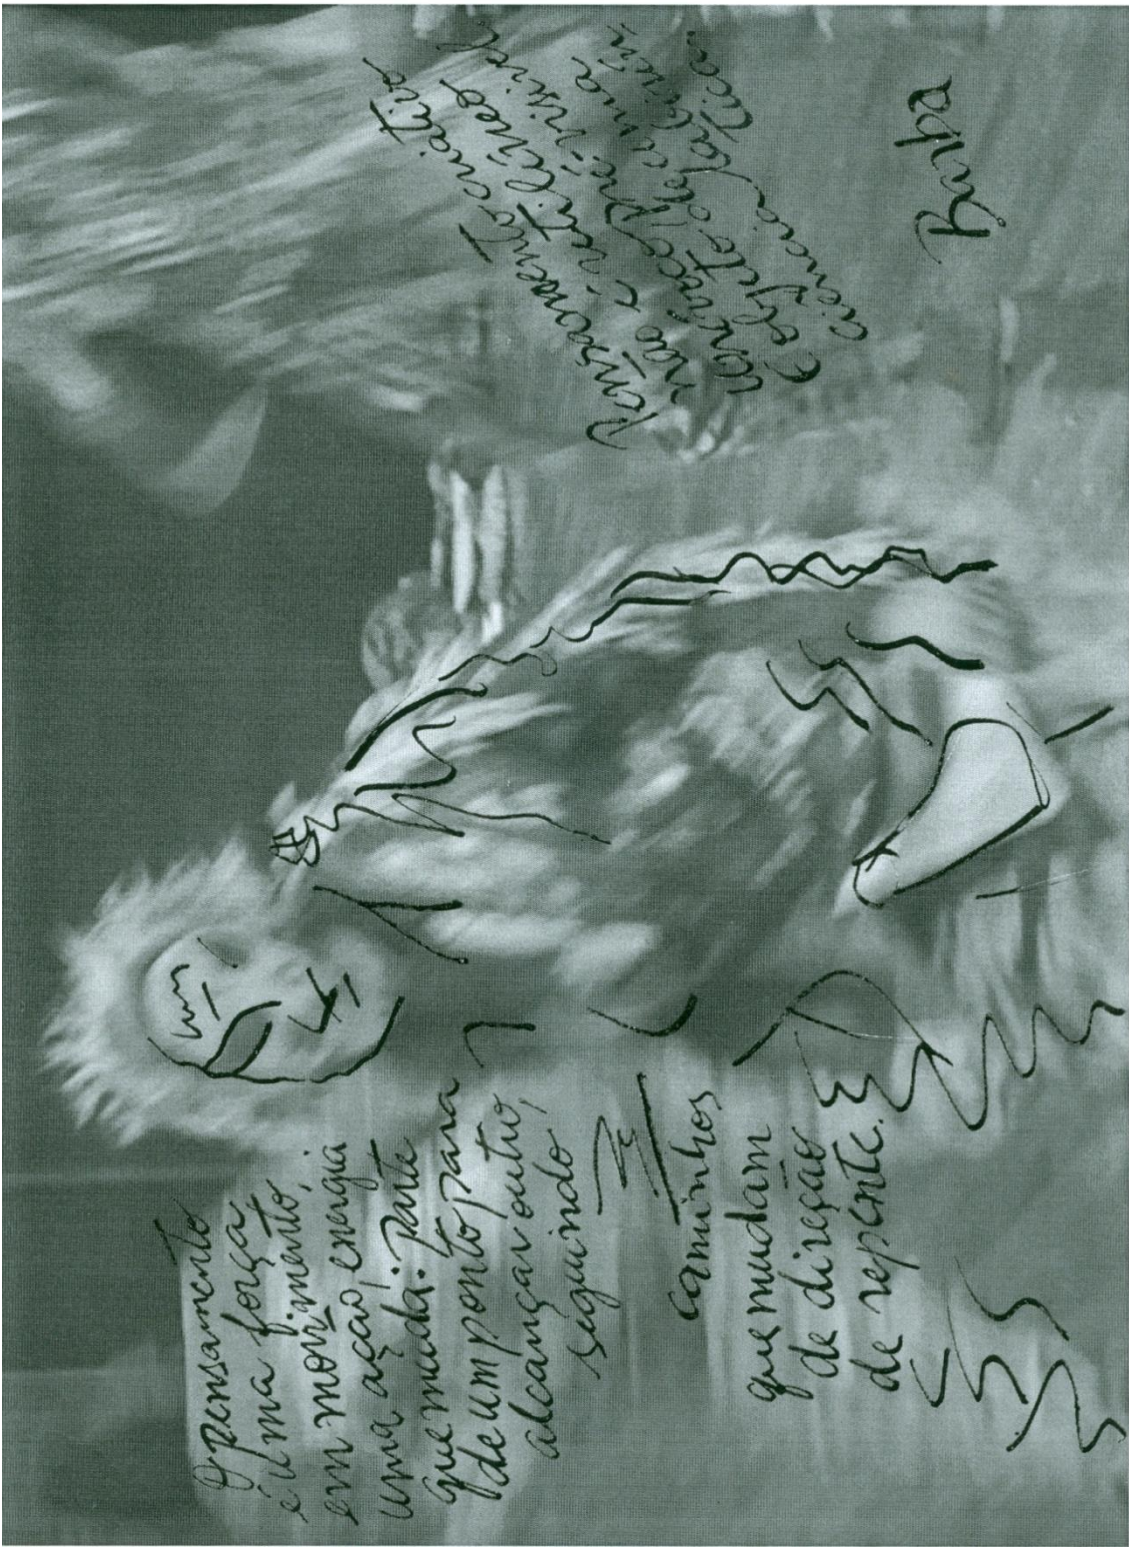 O pensamento
é uma força
em movimento;
uma ação! energia
que muda: parte
de um ponto para
alcançar outro,
seguindo
caminhos
que mudam
de direção
de repente.
Pensamento criativo
não é retilíneo
vezes pré-visível
uma
ciência